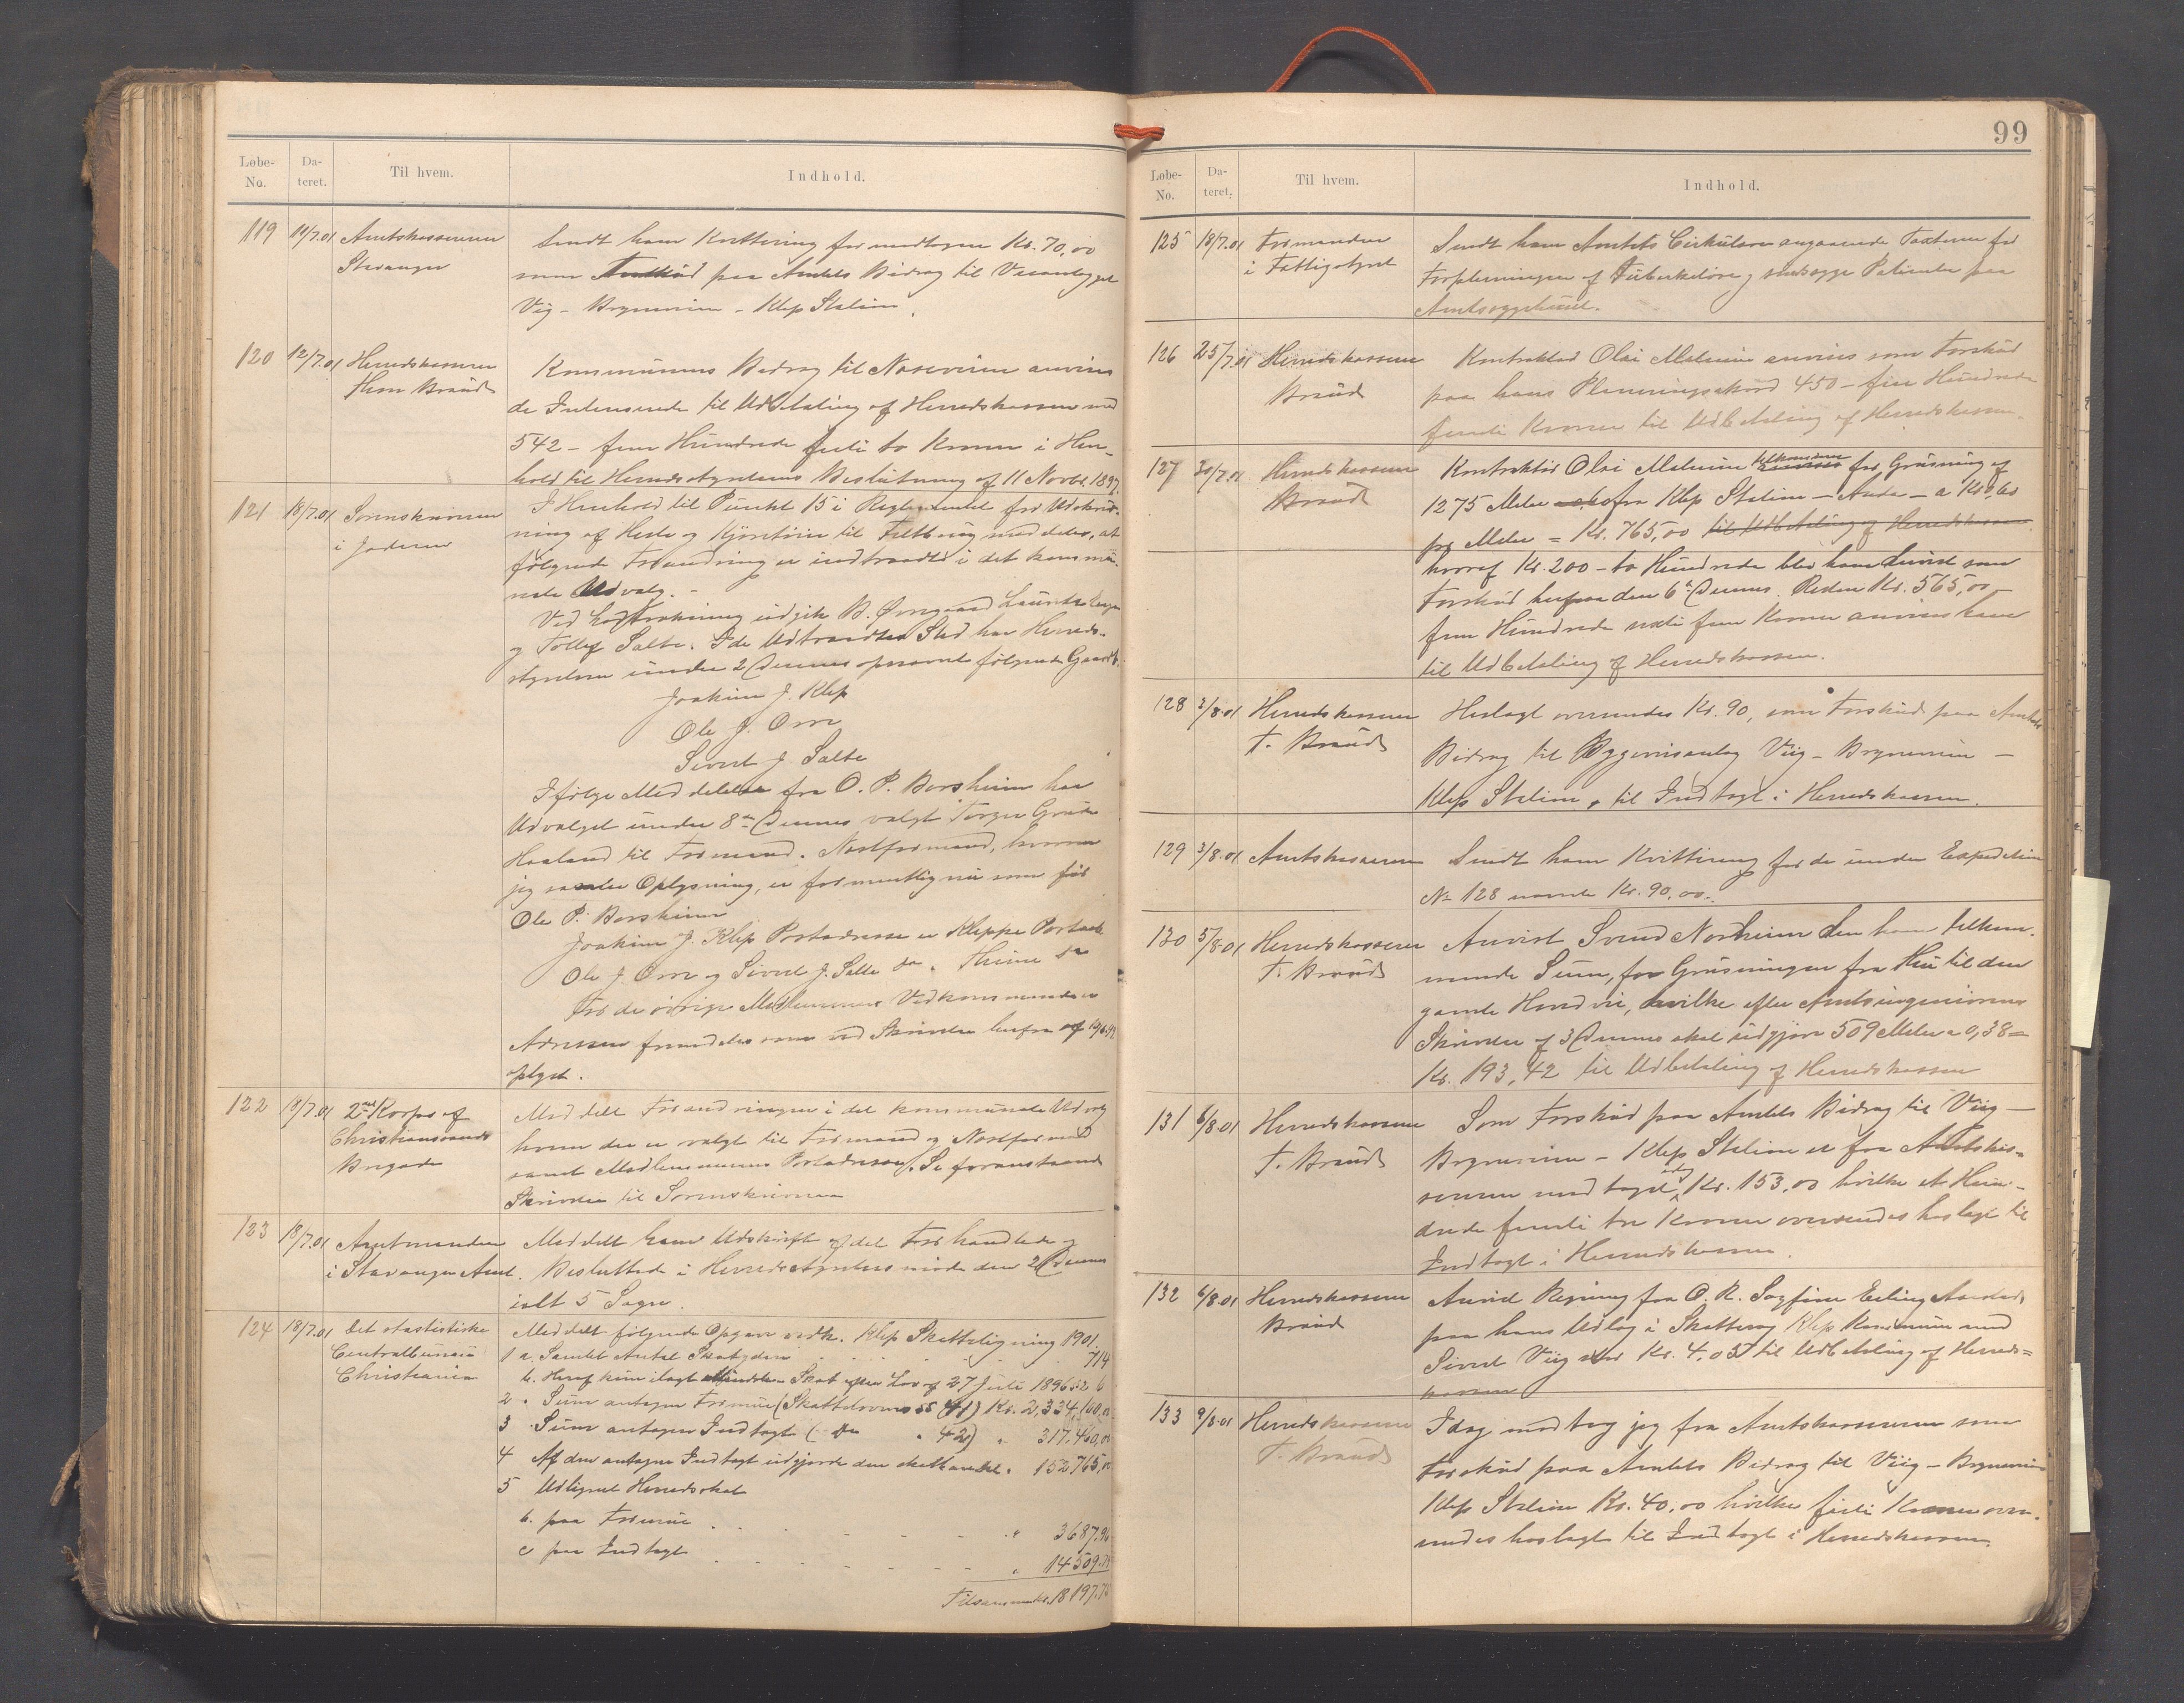 99
Løbe-No. Da-teret. Til hvem. Indhold.
119 11/7.01 Amtskassereren Stavanger
Sendt ham Kvittering for modtagne Kr. 70,00
som Forskud paa Amtets Bidrag til Veianlegget
Vig - Brynesveien - Klep Station.
120 12/7.01 Herredskasserer Thon Braud
Kommunens Bidrag til Noseveien anvises
de Interesserede til Udbetaling af Herredskassen med
542 - fem Hundrede firti to Kroner i Hen-
hold til Herredsstyrelsens Beslutning af 11 Novbr. 1897.
121 18/7.01 Sorenskriveren i Jæderen
I Henhold til Punkt 15 i Reglementet for Udskriv-
ning af Heste og Kjøretøier til Feltbrug meddeles, at
følgende Forandring er indtraadt i det kommu-
nale Udvalg. -
Ved Lodtrækning udgik B.
og Tollef Salte. I de Udtraadtes Sted har Herreds-
styrelsen under 2 Dennes opnævnt følgende
Joakim J. Klep
Ole J. Orre
Sivert J. Salte
Ifølge Meddelelse fra O. P. Borsheim har
Udvalget under 8de Dennes valgt Torger Grude
Haaland til Formand. Næstformand, hvorom
jeg savner Oplysning, er formentlig nu som før
Ole P. Borsheim
Joakim J. Klep Postadresse er Kleppe Postaab.
Ole J. Orre og Sivert J. Salte do. Thime do
For de øvrige Medlemmers Vedkommende er
Adressen fremdeles som ved Skrivelse herfra af
oplyst.
122 18/7.01 2net Korps af Christianssands Brigade
Meddelt Forandringen i det kommunale Udvalg
hvem der er valgt til Formand og Næstformand
samt Medlemmernes Postadresse. Se foranstaaende
Skrivelse til Sorenskriveren
123 18/7.01 Amtmanden i Stavanger Amt.
Meddelt ham Udskrift af det Forhandlede og
Besluttede i Herredsstyrelsesmøde den 2 Dennes
ialt 5 Sager.
124 18/7.01 Det statistiske Centralbureau Christiania
Meddelt følgende Opgave vedk. Klep Skatteligning 1901.
1 a. Samlet Antal Skatydere 714
b. Heraf kun ilagt Skat efter Lov af 27 Juli 1896
2. Sum antagen Formue (Skattelovens §§ 41) Kr. 2,334,100,00
3 Sum antagen Indtægt ( Do " 42) " 317.460,00
4 Af den antagne Indtægt udgjorde den skatbare Del. 152765,00
5 Udlignet Herredsskat
b. paa Formue " 3687.96
c paa Indtægt " 14509.79
Tilsammen Kr. 18197.75
Løbe-No. Da-teret. Til hvem. Indhold.
125 18/7.01 Formanden i Fattigstyret
Sendt ham Amtets Cirkulære angaaende Taxterne for
Forpleiningen af Tuberkuløse og sindssyge Patienter paa
Amtssygehuset.
126 25/7.01 Herredskasserer Braud
Kontraktør Olai Malmin anvises som Forskud
paa hans Planeringsakord 450 - fire Hundrede
femti Kroner til Udbetaling af Herredskassen.
127 30/7.01 Herredskasserer Braud
Kontraktør Olai Malmin tilkommer for Grusning af
1275 Meter fra Klep Station - - a Kr. 0,60
pr Meter = Kr. 765,00 til Udbetaling af Herredskassen
hvoraf Kr. 200 - to Hundrede blev ham anvist som
Forskud herpaa den 6te Dennes. Resten Kr. 565,00
fem Hundrede sexti fem Kroner anvises ham
til Udbetaling af Herredskassen.
128 3/8.01 Herredskasserer T. Braud
Herlagt oversendes Kr. 90, som Forskud paa Amtets
Bidrag til Bygveisanlæg Viig - Brynesveien -
Klep Station, til Indtægt i Herredskassen.
129 3/8.01 Amtskassereren
Sendt ham Kvittering for de under Expedition
No 128 nævnte Kr. 90,00.
130 5/8.01 Herredskasserer T. Braud
Anvist Svend Norheim den ham tilkom-
mende Sum, for Grusningen fra Hu til den
gamle Hovedvei, hvilke efter Amtsingeniørens
Skrivelse af 3 Dennes skal udgjøre 509 Meter a 0,38 =
Kr. 193,42 til Udbetaling af Herredskassen
131 6/8.01 Herredskasserer T. Braud
Som Forskud paa Amtets Bidrag til Viig -
Brynesveien - Klep Station er fra Amtskas-
sereren modtaget Kr. 153,00 hvilke et Hun-
drede femti tre Kroner oversendes hoslagt til
Indtægt i Herredskassen.
132 6/8.01 Herredskasserer Braud
Anvist Regning fra O. R. Sagfører Erling Aarstad
paa hans Udlæg i Skattesag Klep Kommune mod
Sivert Viig stor Kr. 4,05 til Udbetaling af Herreds-
kassen
133 9/8.01 Herredskasserer T. Braud
Idag modtog jeg fra Amtskassereren som
Forskud paa Amtets Bidrag til Viig - Brynesveien
Klep Station Kr. 40,00 hvilke firti Kroner over-
sendes hoslagt til Indtægt i Herredskassen.